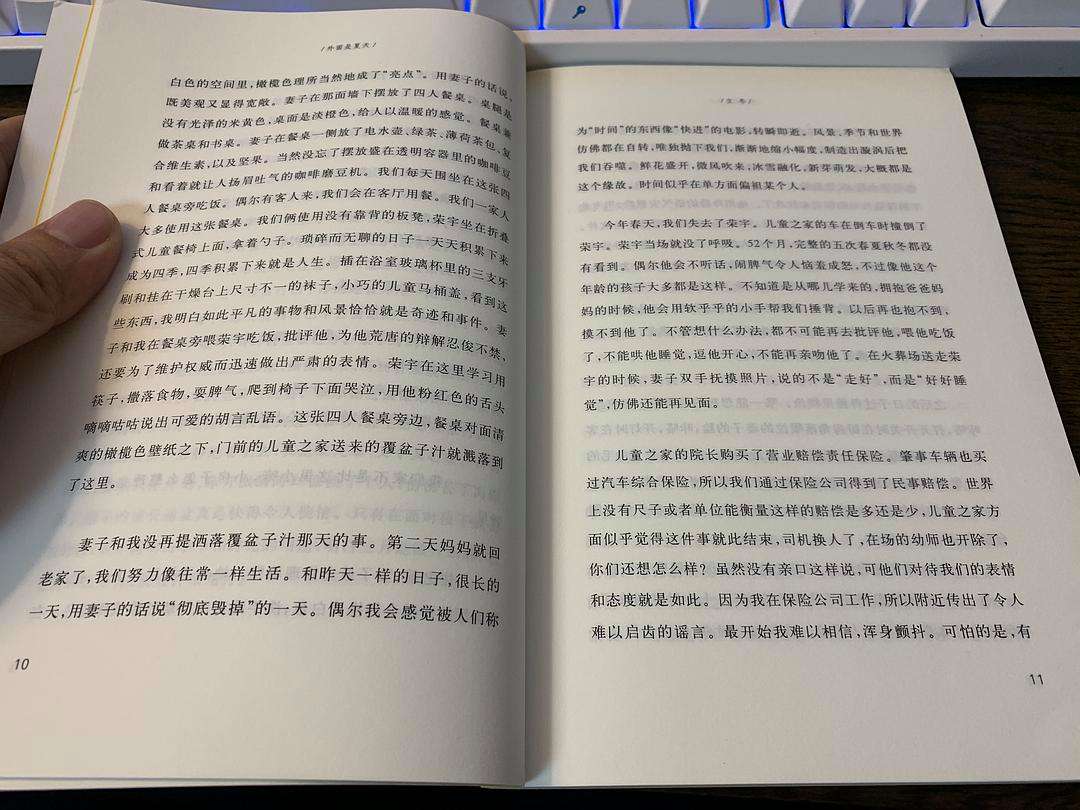 /外面是夏天/
白色的空间里,橄榄色理所当然地成了“亮点”。用妻子的话说,
既美观又显得宽敞。妻子在那面墙下摆放了四人餐桌。桌腿是
没有光泽的米黄色,桌面是淡橙色,给人以温暖的感觉。餐桌兼
做茶桌和书桌。妻子在餐桌一侧放了电水壶、绿茶、薄荷茶包、复
合维生素,以及坚果。当然没忘了摆放盛在透明容器里的咖啡豆
和看着就让人扬眉吐气的咖啡磨豆机。我们每天围坐在这张四
人餐桌旁吃饭。偶尔有客人来,我们会在客厅用餐。我们一家人
大多使用这张餐桌。我们俩使用没有靠背的板凳,荣宇坐在折叠
式儿童餐椅上面,拿着勺子。琐碎而无聊的日子一天天积累下来
成为四季,四季积累下来就是人生。插在浴室玻璃杯里的三支牙
刷和挂在干燥台上尺寸不一的袜子,小巧的儿童马桶盖,看到这
些东西,我明白如此平凡的事物和风景恰恰就是奇迹和事件。妻
子和我在餐桌旁喂荣宇吃饭,批评他,为他荒唐的辩解忍俊不禁,
还要为了维护权威而迅速做出严肃的表情。荣宇在这里学习用
筷子,撒落食物,耍脾气,爬到椅子下面哭泣,用他粉红色的舌头
嘀嘀咕咕说出可爱的胡言乱语。这张四人餐桌旁边,餐桌对面清
爽的橄榄色壁纸之下,门前的儿童之家送来的覆盆子汁就溅落到
了这里。
妻子和我没再提洒落覆盆子汁那天的事。第二天妈妈就回
老家了,我们努力像往常一样生活。和昨天一样的日子,很长的
一天,用妻子的话说“彻底毁掉”的一天。偶尔我会感觉被人们称
10
/立冬/
为“时间”的东西像“快进”的电影,转瞬即逝。风景、季节和世界
仿佛都在自转,唯独抛下我们,渐渐地缩小幅度,制造出漩涡后把
我们吞噬。鲜花盛开,微风吹来,冰雪融化,新芽萌发,大概都是
这个缘故。时间似乎在单方面偏袒某个人。
今年春天,我们失去了荣宇。儿童之家的车在倒车时撞倒了
荣宇。荣宇当场就没了呼吸。52个月,完整的五次春夏秋冬都没
有看到。偶尔他会不听话,闹脾气令人恼羞成怒,不过像他这个
年龄的孩子大多都是这样。不知道是从哪儿学来的,拥抱爸爸妈
妈的时候,他会用软乎乎的小手帮我们捶背。以后再也抱不到,
摸不到他了。不管想什么办法,都不可能再去批评他,喂他吃饭
了,不能哄他睡觉,逗他开心,不能再亲吻他了。在火葬场送走荣
宇的时候,妻子双手抚摸照片,说的不是“走好”,而是“好好睡
觉”,仿佛还能再见面。
儿童之家的院长购买了营业赔偿责任保险。肇事车辆也买
过汽车综合保险,所以我们通过保险公司得到了民事赔偿。世界
上没有尺子或者单位能衡量这样的赔偿是多还是少,儿童之家方
面似乎觉得这件事就此结束,司机换人了,在场的幼师也开除了,
你们还想怎么样?虽然没有亲口这样说,可他们对待我们的表情
和态度就是如此。因为我在保险公司工作,所以附近传出了令人
难以启齿的谣言。最开始我难以相信,浑身颤抖。可怕的是,有
11